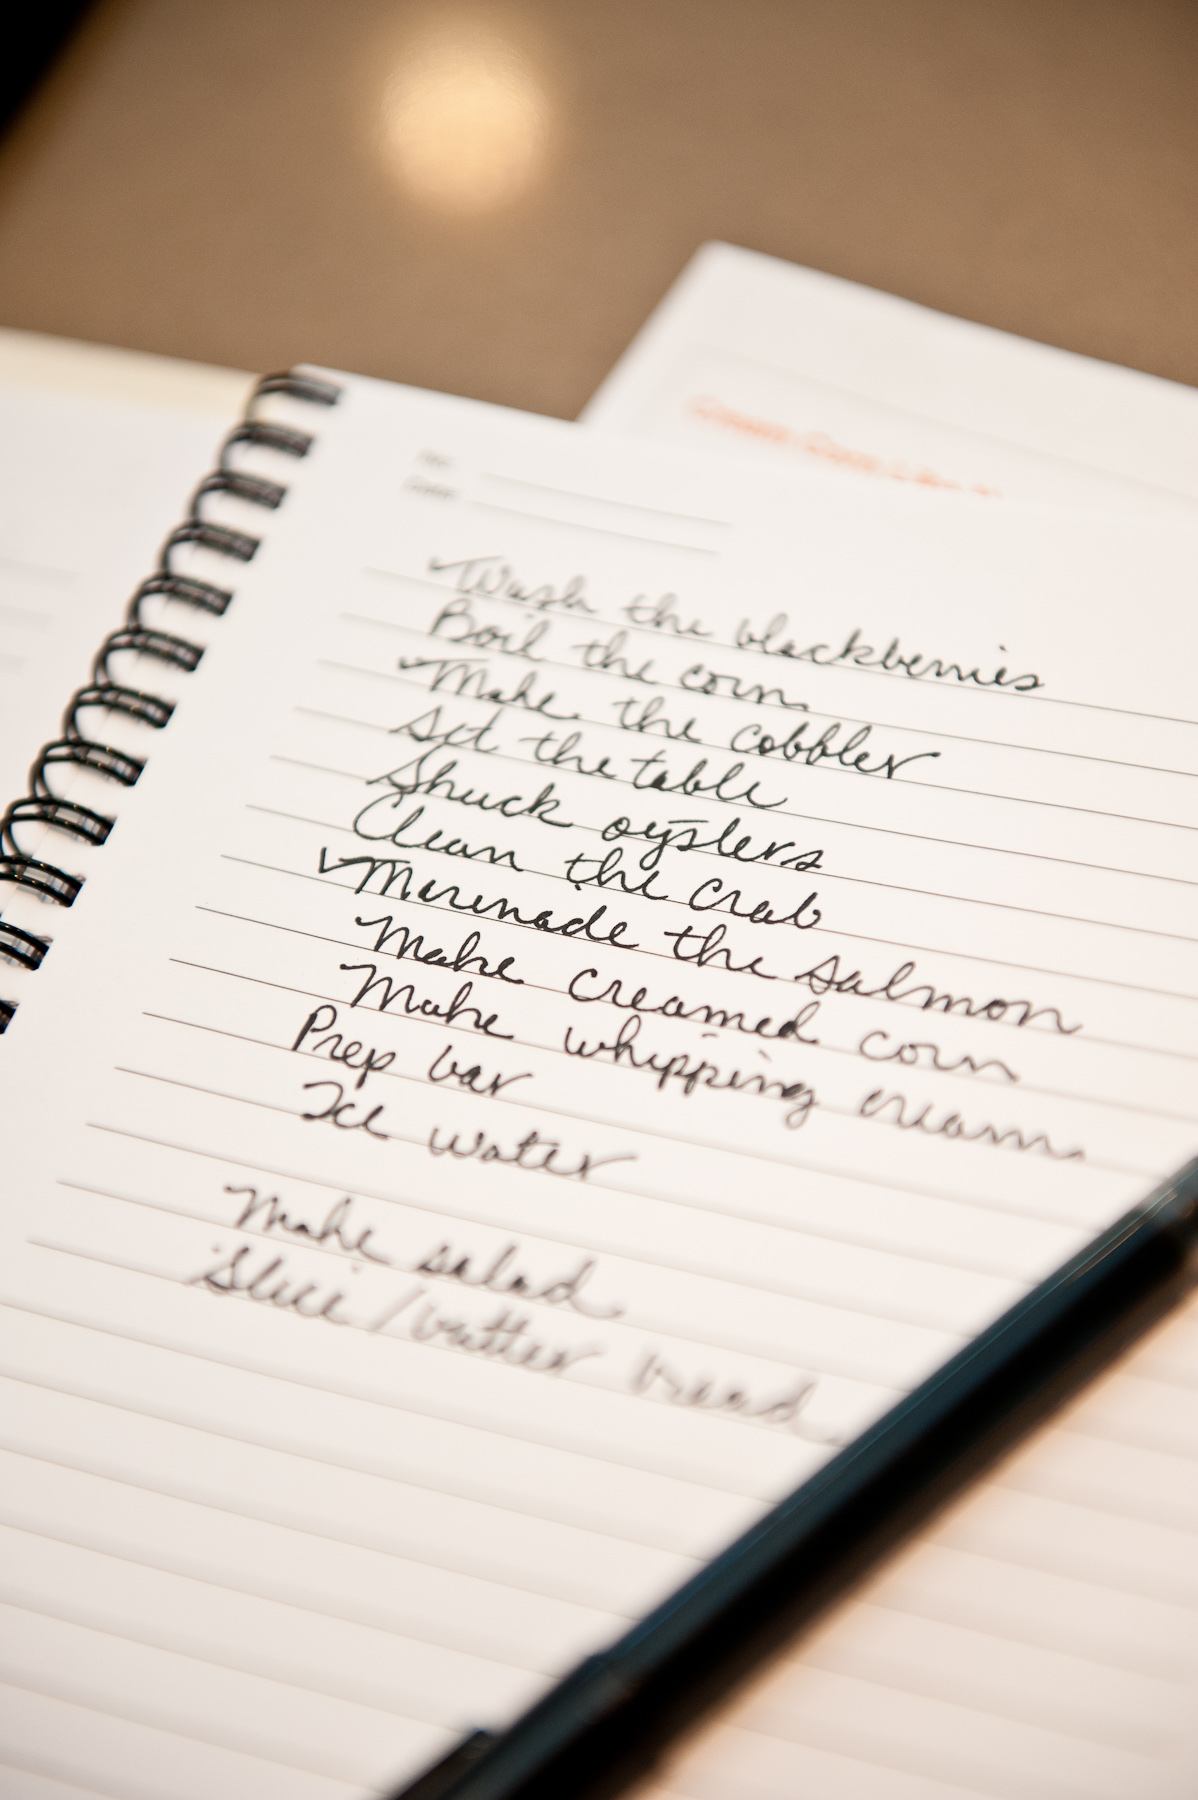 Wash the blackberries
Boil the corn
Make the cobbler
Set the table
Shuck oysters
Clean the crab
✓Marinade the salmon
Make creamed corn
Make whipping cream
Prep bar
Ice water
Make salad
Slice/butter bread